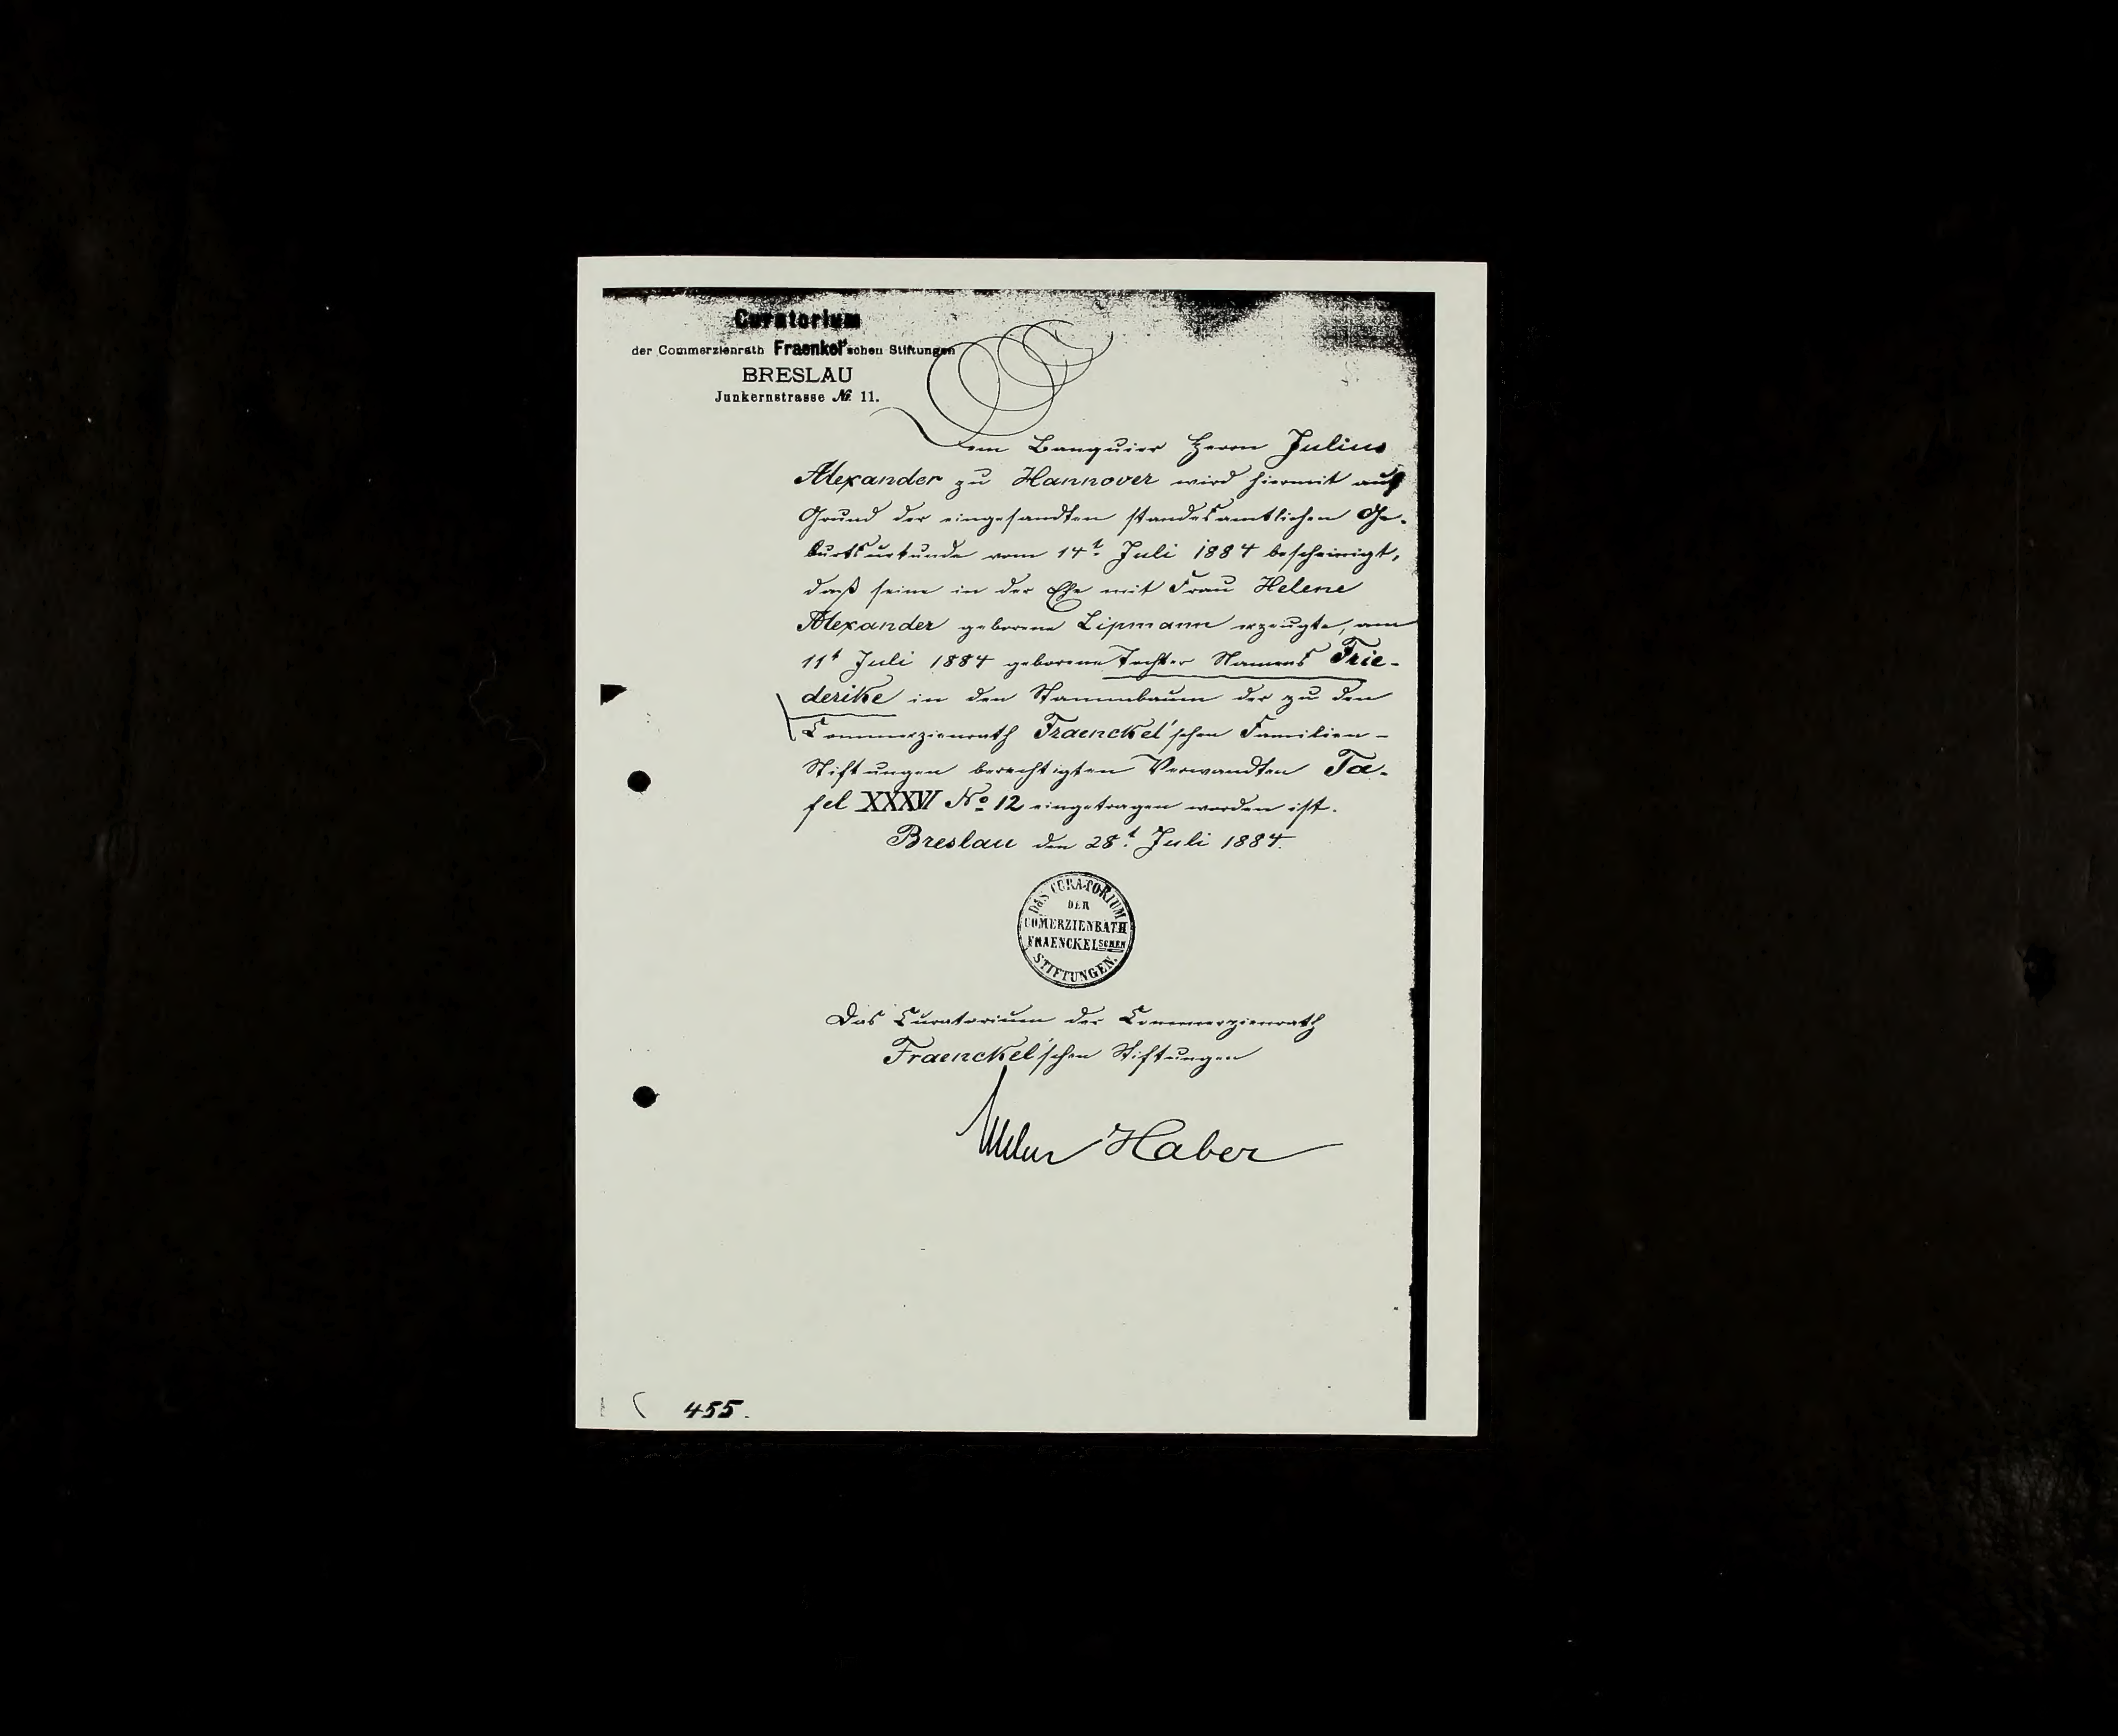 Curatorium
der Commerzienrath Fraenkel'schen Stiftungen
BRESLAU
Junkernstrasse No. 11.
Dem Banquier Herrn Julius
Alexander zu Hannover wird hiermit auf
Grund der eingesandten standesamtlichen Ge-
burtsurkunde vom 14t. Juli 1884 bescheinigt,
daß seine in der Ehe mit Frau Helene
Alexander geborene Lipmann erzeugte, am
11t Juli 1884 geborene Tochter Namens Frie-
derike in den Stammbaum der zu den
Commerzienrath Fraenckel'schen Familien-
Stiftungen berechtigten Verwandten Ta-
fel XXXVI No 12 eingetragen worden ist.
Breslau den 28t. Juli 1884.
DAS CURATORIUM
DER
COMERZIENRATH
FRAENCKELSCHEN
STIFTUNGEN.
Das Curatorium der Commerzienrath
Fraenckel'schen Stiftungen
Haber
455.